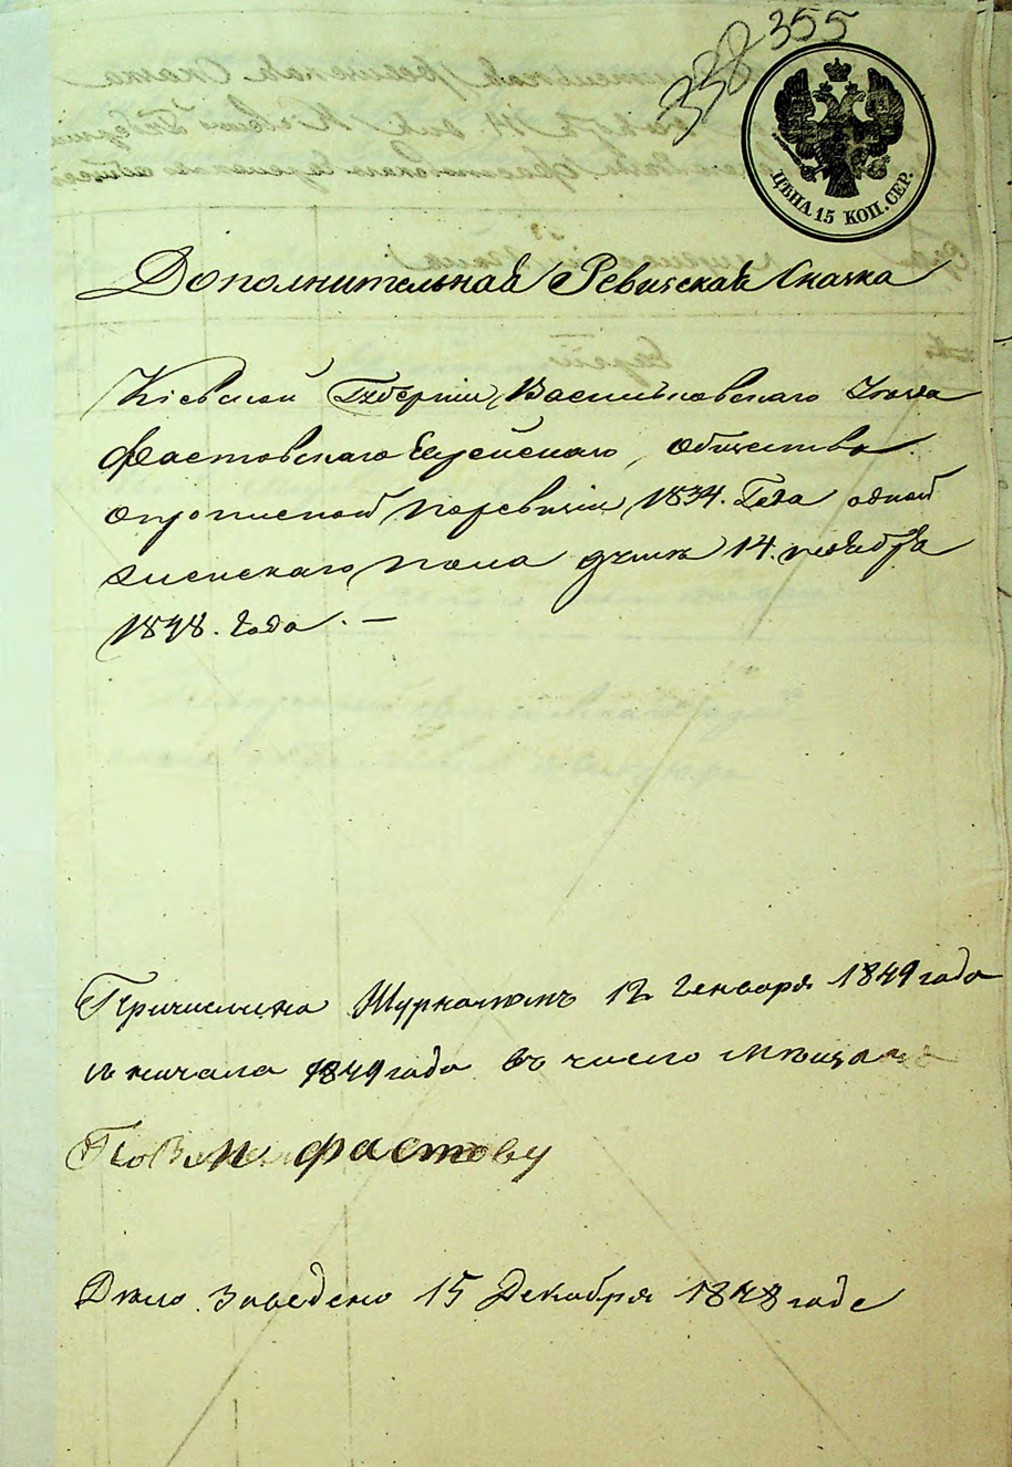 338 355
ЦѢНА 15 КОП. СЕР.
Дополнительная Ревизская Сказка
Кіевской Губерніи, Васильковскаго Уезда
Фастовскаго Еврейскаго Общества
опрописной поревизіи 1834. Года одной
женскаго пола души 14. ноября
1848. Года. —
Причислена Журналомъ 12 Генваря 1849 года
с начала 1849 года въ число мѣщанъ
по м Фастову
Дѣло Заведено 15 Декабря 1848 годе